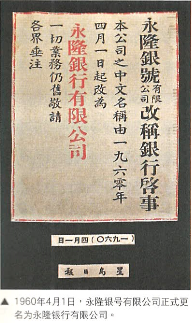 永隆銀號有限公司改稱銀行啓事
本公司之中文名稱由一九六零年
四月一日起改為
永隆銀行有限公司
一切業務仍舊敬請
各界垂注
日一月四(〇六九一)
報日島星
▲ 1960年4月1日，永隆银号有限公司正式更
名为永隆银行有限公司。